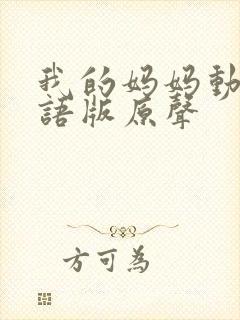 我的妈妈動
語版原聲
方可為